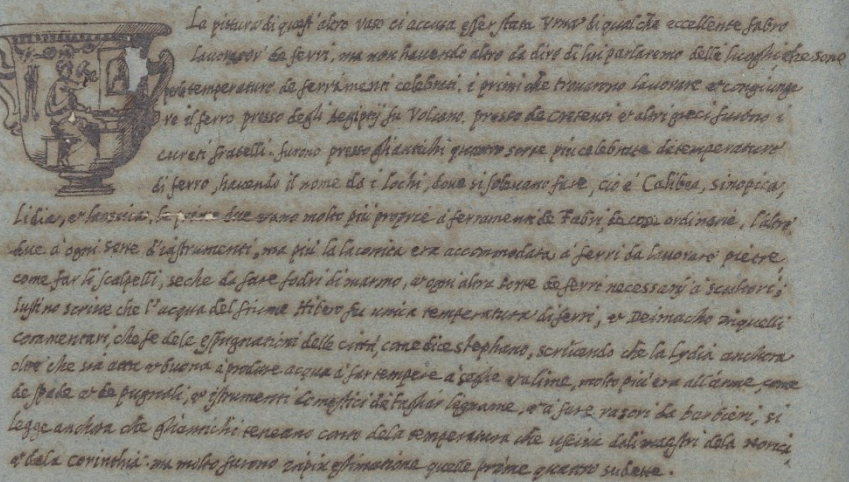 La pittura di quest'altro vaso ci accusa esser stata Urna di qualche eccellente fabro
lavorator' de ferri, ma non havendo altro da dire di lui parlaremo delli luoghi che sono
temperature de ferramenti celebrati. i primi che trovarono lavorare et congiunge
re il ferro presso degli Aegiptij fu Volcano, presso de Cretensi et altri greci furono i
cureti fratelli. furono presso gli antichi quattro sorte più celebrate di temperature
di ferro, havendo il nome da i lochi, dove si solevano fare, cioè Calibea, sinopica,
Lidia, et laconica, le prime due erano molto più proprie à ferramenti de Fabri de cose ordinarie, l'altre
due à ogni sorte d'instrumenti, ma più la laconica era accommodata à ferri da lavorare pietre
come far li scalpelli, seche da fare fodri di marmo, et ogni altra sorte de ferri necessarj à scultori;
Justino scrive che l'acqua del fiume Hibero fu unica temperatura di ferri, et Deimacho in quelli
comentari, che fe dele espugnationi delle città, come dice stephano, scrivendo che la Lydia anchora
oltre che sia atta et buona à produre acqua à far tempere à seghe et lime, molto più era all'arme, come
de spade et de pugnali, et istrumenti domestici da tagliar legname, et à fare rasori da barbieri, si
legge anchora che gli antichi teneano conto dela temperatura che usciva dali maestri dela
et dela Corinthia. ma molto furono in più estimatione quelle prime quattro sudette.